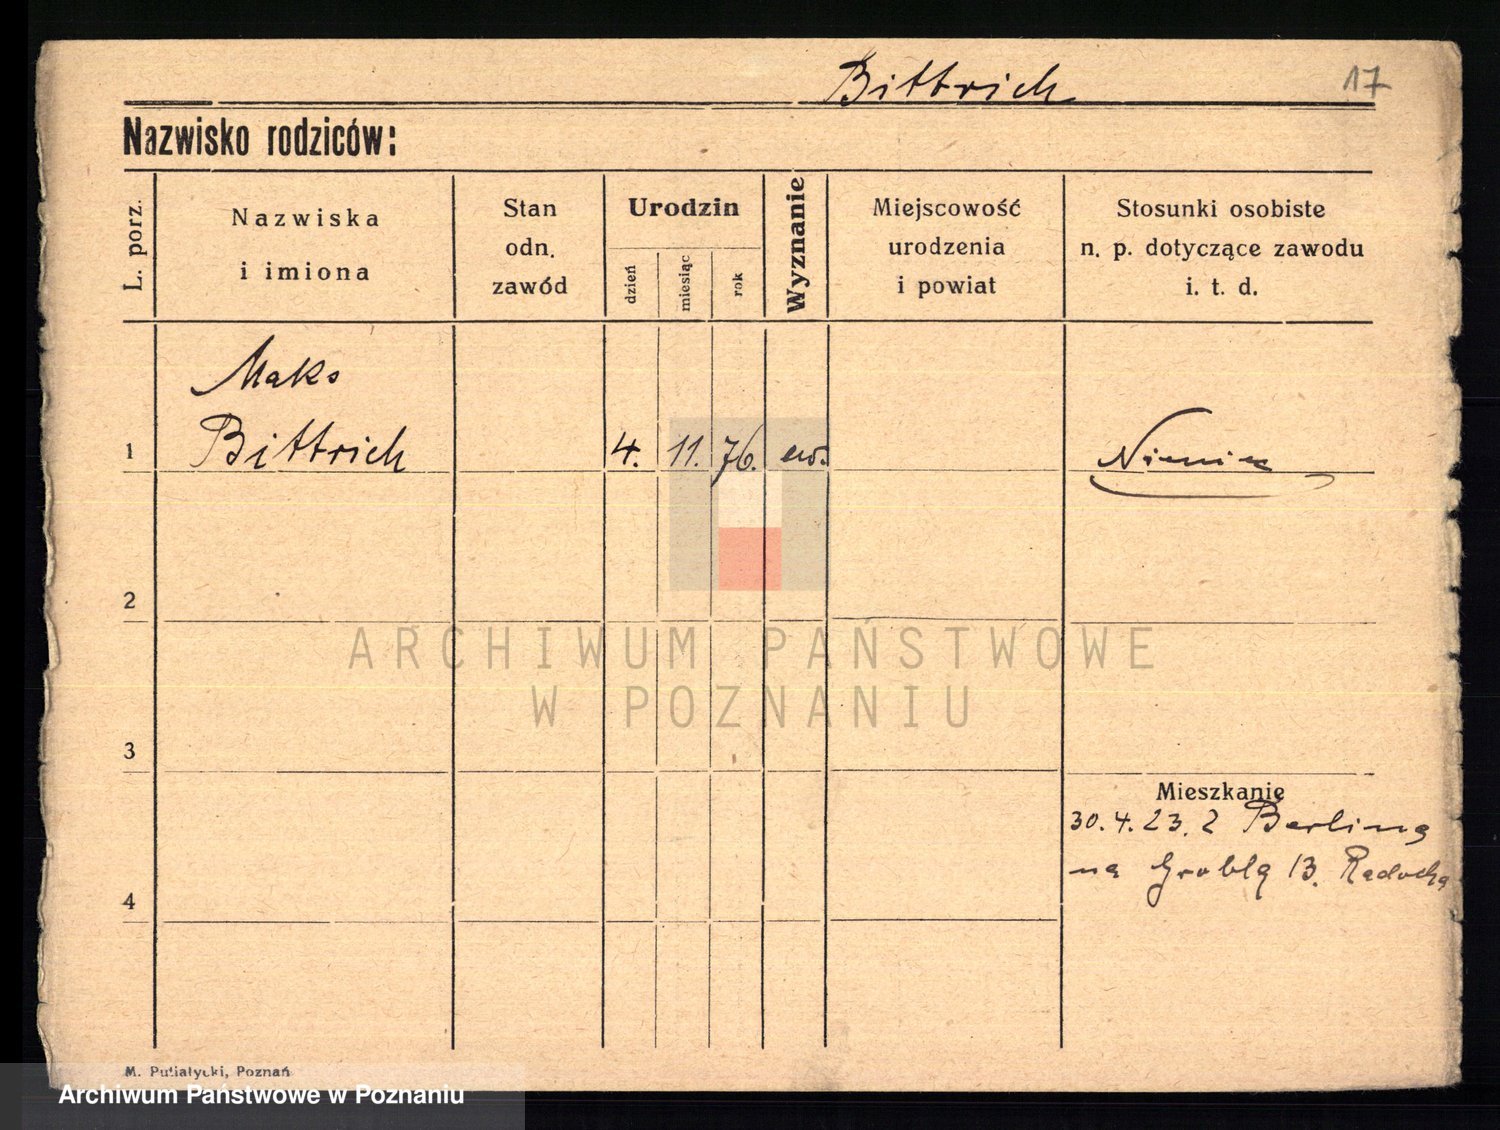 Bittrich
17
Nazwisko rodziców:
L. porz.
Nazwiska
i imiona
Stan
odn.
zawód
Urodzin
dzień
miesiąc
rok
Wyznanie
Miejscowość
urodzenia
i powiat
Stosunki osobiste
n. p. dotyczące zawodu
i. t. d.
Maks
1 Bittrich 4. 11. 76. ew.
2
3
4
Mieszkanie
30. 4. 23. z Berlina
na Groblą 13. Radocka
ARCHIWUM PAŃSTWOWE
W POZNANIU
M. Putiatycki, Poznań
Archiwum Państwowe w Poznaniu